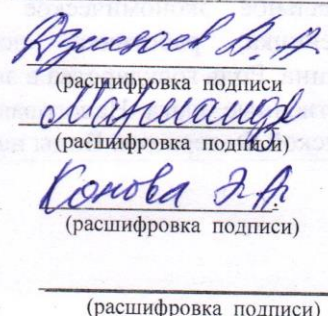 Дзицоев А. А
(расшифровка подписи
(расшифровка подписи)
Конова З. А.
(расшифровка подписи)
(расшифровка подписи)